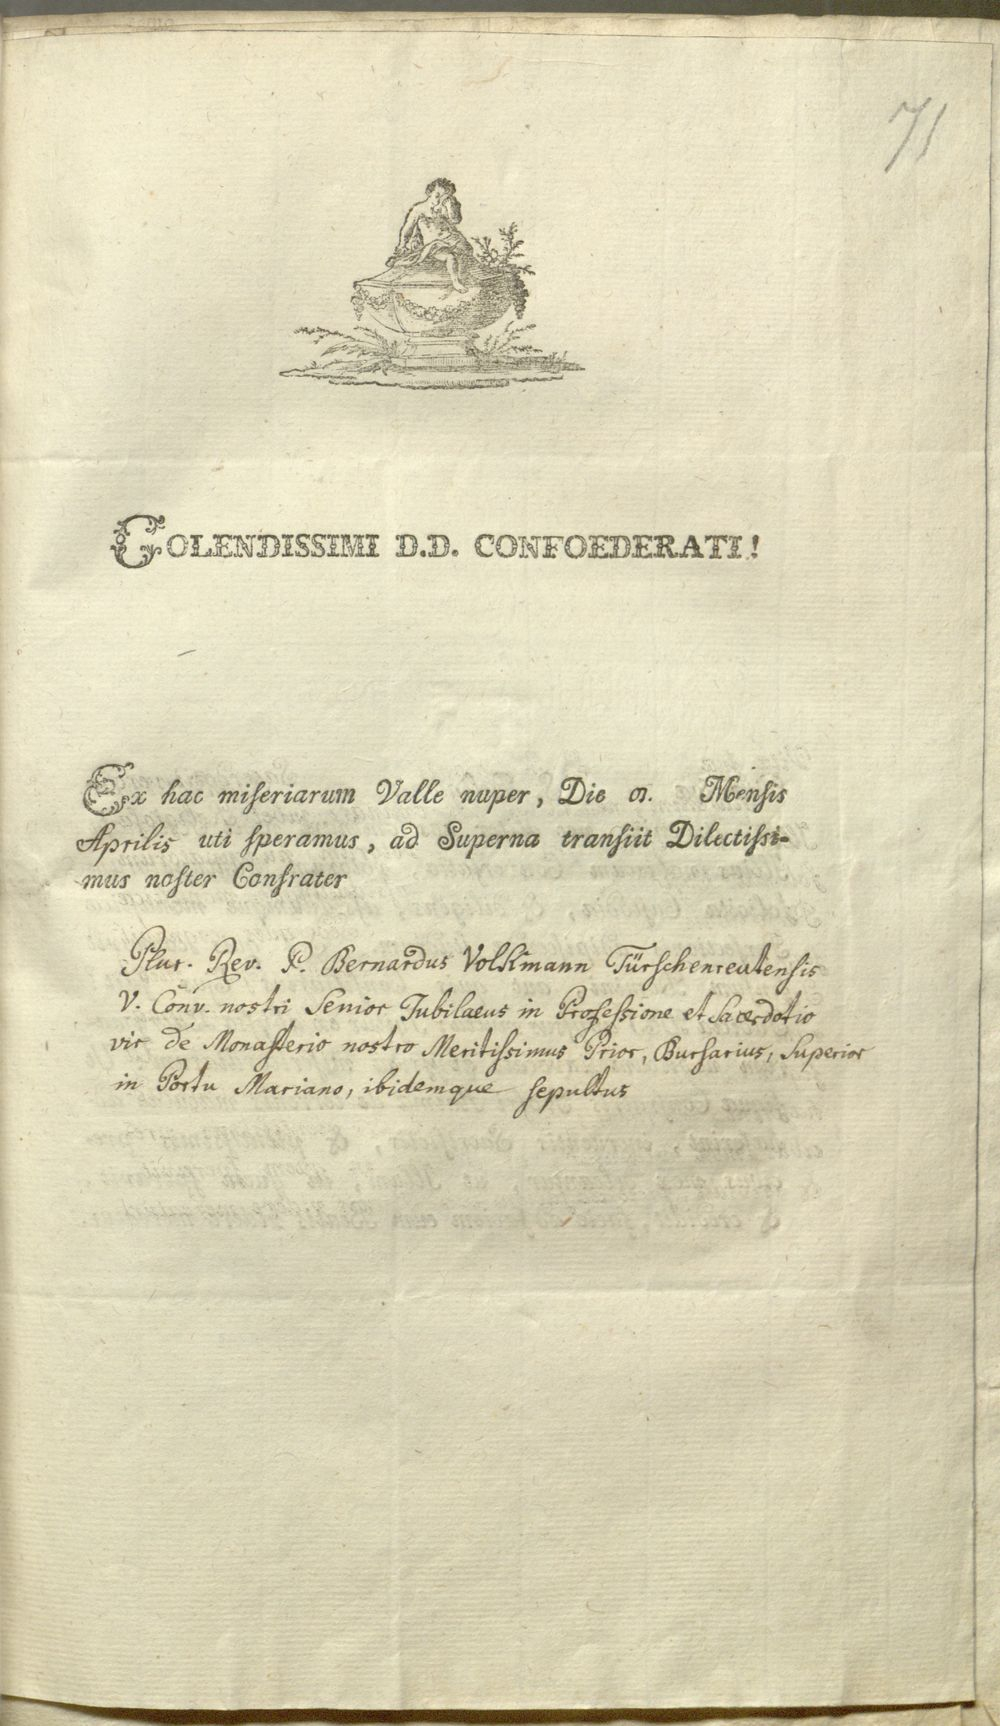 71
COLENDISSIMI D.D. CONFOEDERATI!
Ex hac miseriarum Valle nuper, Die Mensis
Aprilis uti speramus, ad Superna transiit Dilectissi-
mus noster Confrater
Plur. Rev. P. Bernardus Volkmann Türschenreutensis
V. Conv. nostri Senior Jubilaeus in Professione et Sacerdotio
vir de Monasterio nostro Meritissimus Prior, Bursarius, Superior
in Portu Mariano, ibidemque sepultus